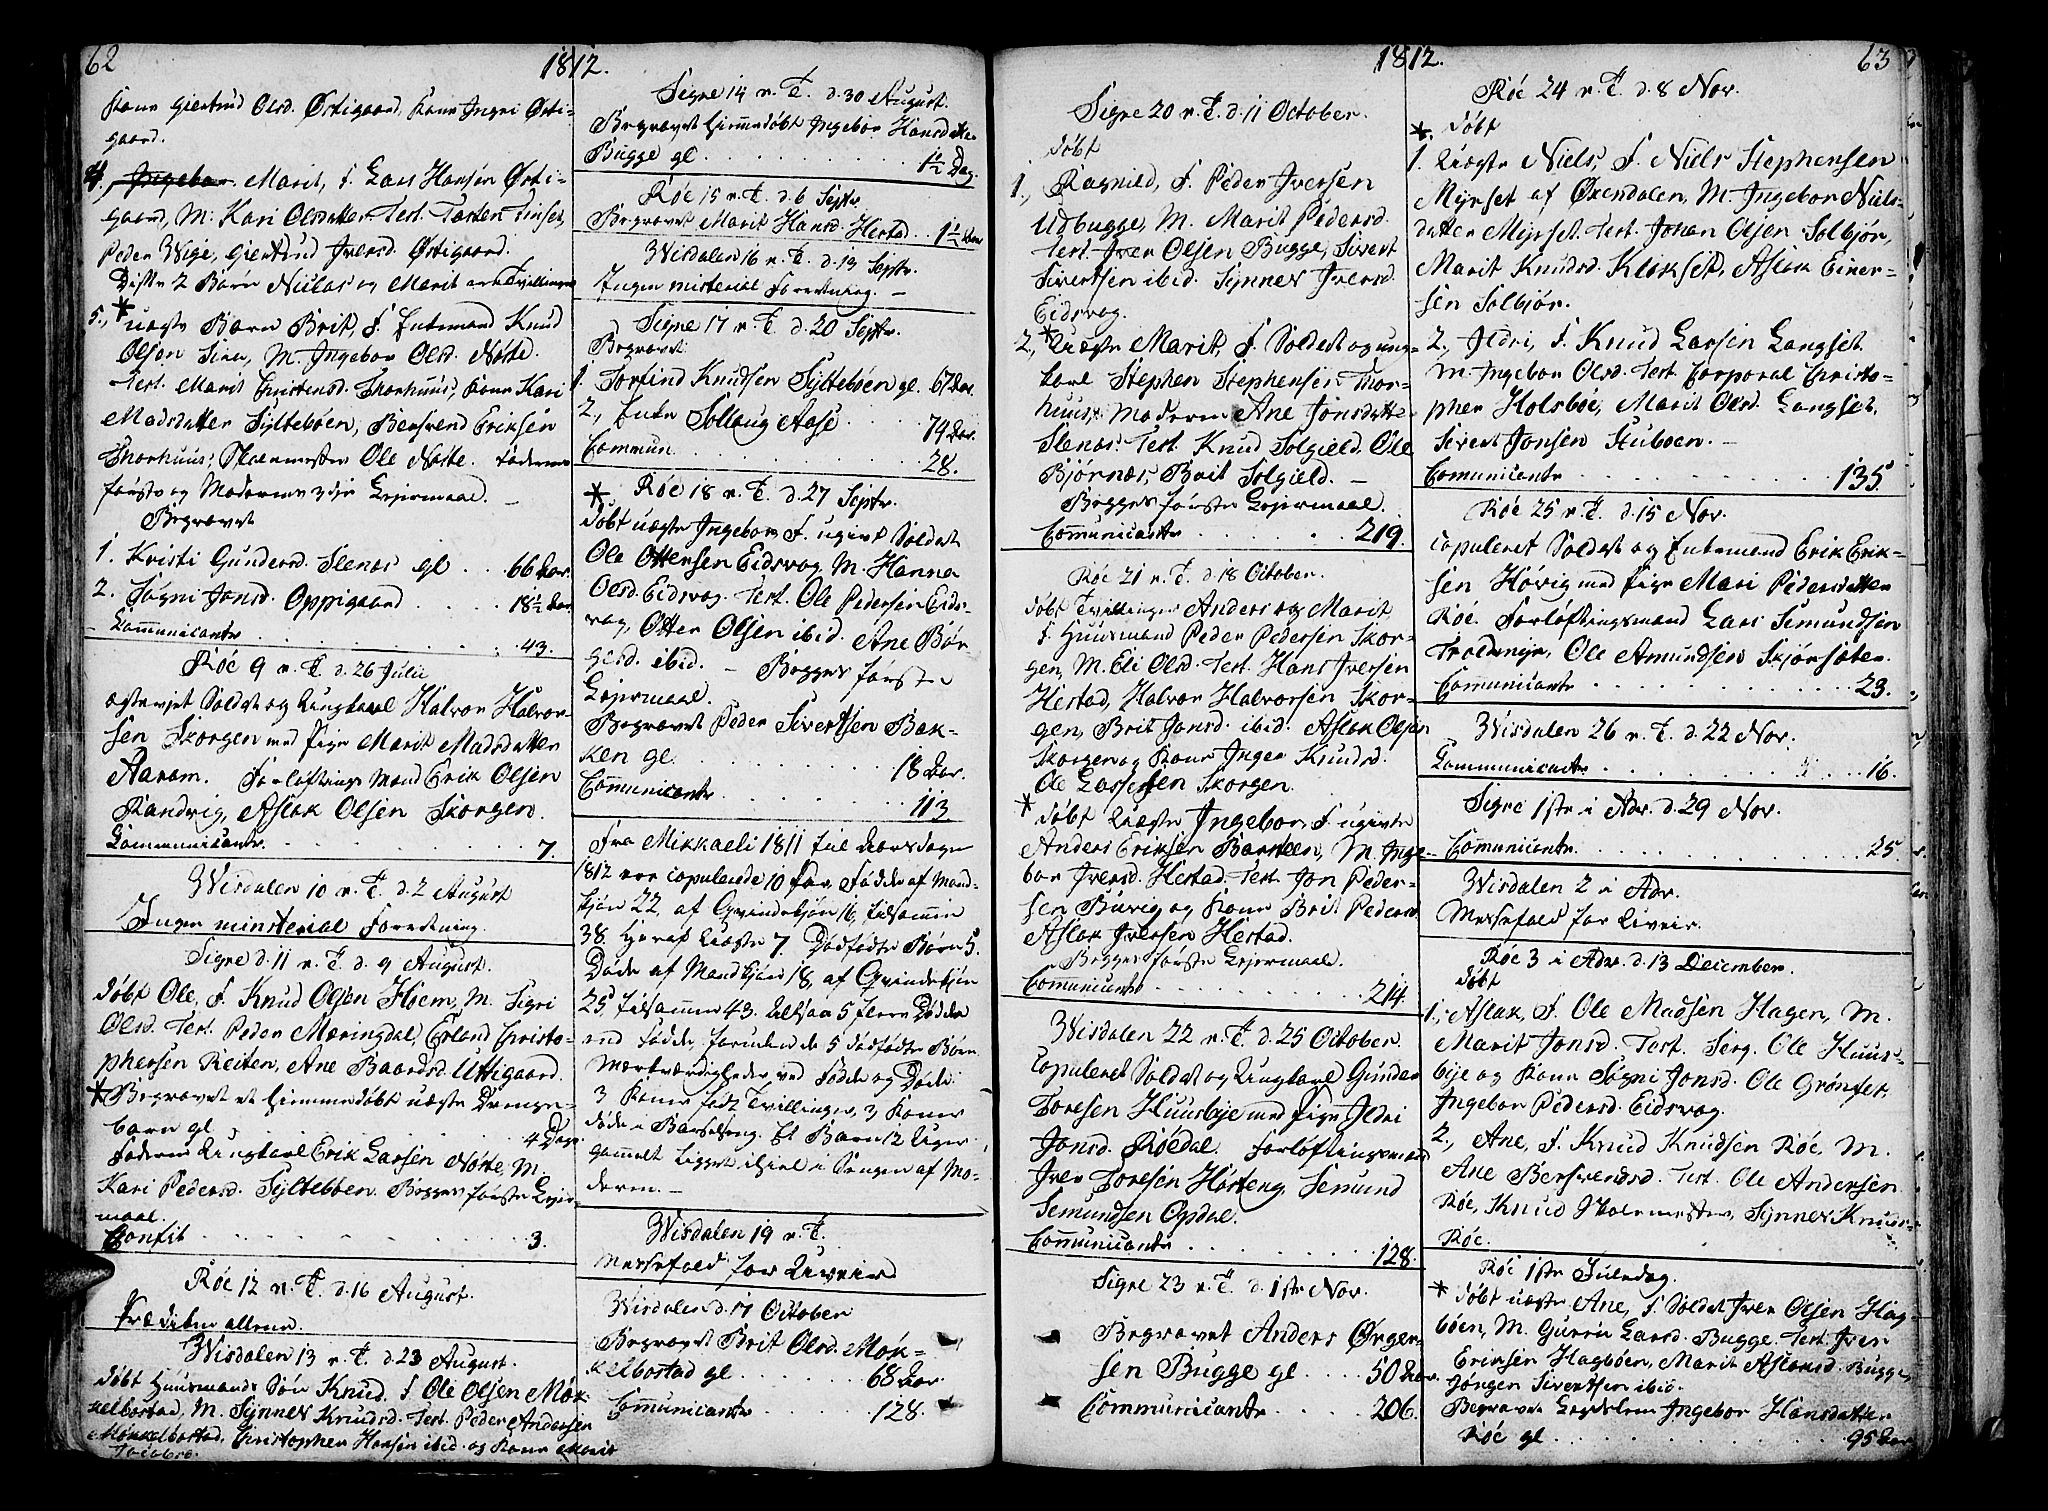 62
1812.
Kone Giertrud Olsd. Østigaard, Kone Ingri Østi-
gaard.
4. Ingebor Marit, F. Lars Hansen Østi-
gaard, M. Kari Olsdatter. Test. Torsten Tinset,
Peder Wige, Giertrud Iversd. Østigaard.
Disse 2 Børn Niclas og Marit ere Tvillinger
5., * uægte Barn Brit, F. Enkemand Knud
Olsen Sira, M. Ingebor Olsd. Nøste.
Test. Marit Christensd. Thorhuus, Kone Kari
Madsdatter Sylteboen, Bersvend Eriksen
Thorhuus, Skolemester Ole Nøste. Faderens
første og Moderens 3die Lejermaal. –
Begravet
1. Kristi Gundersd. Slenes gl . . 66 Aar.
2. Søgni Jonsd. Oppigaard . . . . 18½ Aar
Communicantr . . . . . . 43.
Røe 9 n. T. d. 26 Julii
ægteviet Soldat og Ungkarl Halvor Halvor-
sen Skorgen med Pige Marit Madsdatter
Aaram. Forloftings Mænd Erik Olsen
Randvig, Aslak Olsen Skorgen.
Communicantr . . . . . . 7.
Wisdalen 10 n. T. d. 2 August
Ingen ministerial Forretning.
Sigre d. 11 n. T. d. 9 August.
Døbt Ole, F. Knud Olsen Hoem, M. Sigri
Olsd. Test. Peder Meringdal, Erland Christo-
phersen Reiten, Ane Baardsd. Uttigaard.
* Begravet et hjemmedøbt uægte Drenge-
barn gl . . . . . . 4 Dage
Faderen Ungkarl Erik Larsen Nøste, M.
Kari Pedersd. Sylteboen. Begges første Lejer-
maal.
Confit . . . . . . 3.
Røe 12 n. T. d. 16 August.
Prædiken allene.
Wisdalen 13 n. T. d. 23 August.
Døbt Huusmands Søn Knud. F. Ole Olsen Møk-
kelbostad, M. Synnev Knudsd. Test. Peder Andersen
Møkkelbostad, Christopher Hansen ibid. og Kone Marit
Jacobsd.
Sigre 14 n. T. d. 30 August.
Begravet hjemmedøbt Ingebor Hansdatter
Bugge gl . . . . . . 1½ Dag.
Røe 15 n. T. d. 6 Septr.
Begravet Marit Hansd. Herstad . . 1½ Aar
Wisdalen 16 n. T. d. 13 Septr.
Ingen misterial Forretning. –
Sigre 17 n. T. d. 20 Septr.
Begravet
1. Torfind Knudsen Sylteboen gl. 67 Aar.
2., Enke Sollaug Aase . . . . 74 Aar.
Commun. . . . . . 28.
Røe 18 n. T. d. 27 Septr.
* Døbt uægte Ingebor, F. ugivt Soldat
Ole Ottersen Eidsvog, M. Hanna
Olsd. Eidsvog. Test. Ole Pedersen Eids-
vog, Otter Olsen ibid. Ane Bør-
gesd. ibid. – Begges første
Lejermaal.
Begravet Peder Sivertsen Bak-
ken gl. . . . . . 18 Aar.
Communicantr . . . . . . 113
Fra Mikkaeli 1811 til Aarsdagen
1812 ere copulerede 10 Par, Fødde af Mand-
kjøn 22, af Qvindekjøn 16, tilsammen
38. Heraf Uægte 7. Dødfødte Børn 5.
Døde af Mandkjøn 18, af Qvindekjøn
25, tilsammen 43. Altsaa 5 flere Dødde
end Fødde, foruden de 5 dødfødte Børn.
Mærkværdigheder ved Fødde og Døde:
3 Koner født Tvillinger, 3 Koner
døde i Barselseng. Et Barn 12 Uger
gammelt ligget ihjel i Sengen af Mo-
deren. –
Wisdalen 19 n. T.
Messefald for Uveir
Wisdalen d. 17 October
Begravet Brit Olsd. Møk-
kelbostad gl . . . . . . 68 Aar.
Communicantr . . . . 128.
1812.
63
Sigre 20 n. T. d. 11 October.
Døbt
1., Ragnild, F. Peder Iversen
Udbugge, M. Marit Pedersd.
Test. Iver Olsen Bugge, Sivert
Sivertsen ibid. Synnev Iversd.
Eidsvog.
2., * Uægte Marit, F. Soldat og ung-
karl Stephen Stephensen Thor-
huus, Moderen Ane Jonsdatter
Slenes. Test. Knud Solgield, Ole
Bjørnes, Brit Solgield. –
Begges første Lejermaal.
Communicantr . . . . . . 219.
Røe 21 n. T. d. 18 October.
Døbt Tvillinger Anders og Marit,
F. Huusmand Peder Pedersen Skor-
gen, M. Eli Olsd. Test. Hans Iversen
Herstad, Halvor Halvorsen Skor-
gen, Brit Jonsd. ibid. Aslak Olsen
Skorgen og Kone Inger Knudsd.
Ole Larsen Skorgen.
* Døbt Uægte Ingebor, F. ugivte
Anders Eriksen Barsteen, M. Inge-
bor Iversd. Herstad. Test. Jon Peder-
sen Buvig og Kone Brit Pedersd.
Aslak Iversen Herstad.
Begges første Lejermaal.
Communicantr . . . . . . 214.
Wisdalen 22 n. T. d. 25 October.
Copuleret Soldat og Ungkarl Gunder
Toresen Huusbye med Pige Ildri
Jonsd. Røedal. Forloftingsmænd
Iver Toresen Horteng, Semund
Semundsen Ogdal.
Communicantr . . . . . . 128.
Sigre 23 n. T. d. 1ste Nov.
Begravet Anders Ørgen-
sen Bugge gl . . . . 50 Aar.
Communicantr . . . . . . 206.
Røe 24 n. T. d. 8 Nov.
*. Døbt
1. Uægte Niels, F. Niels Stephensen
Myrset af Øxendalen, M. Ingebor Niels-
datter Myrset. Test. Johan Olsen Solbjør,
Marit Knudsd. Klokset, Aslak Einer-
sen Solbjør.
2., Ildri, F. Knud Larsen Langset,
M. Ingebor Olsd. Test. Corporal Christo-
pher Holsboe, Marit Olsd. Langset,
Sivert Jonsen Stuboen. –
Communicantr . . . . . . 135.
Røe 25 n. T. d. 15 Nov.
Copuleret Soldat og Enkemand Erik Erik-
sen Høvig med Pige Mari Pedersdatter
Røe. Forloftingsmænd Lars Semundsen
Troldmyr, Ole Amundsen Skjørsæter.
Communicantr . . . . . . 23.
Wisdalen 26 n. T. d. 22 Nov.
Communicantr . . . . . . 16.
Sigre 1ste i Adv. d. 29 Nov.
Communicantr . . . . . . 25
Wisdalen 2 i Adv.
Messefald for Uveir.
Røe 3 i Adv. d. 13 December.
Døbt
1., Aslak, F. Ole Madsen Hagen, M.
Marit Jonsd. Test. Serg. Ole Huus-
bye og Kone Søgni Jonsd. Ole Grønset,
Ingebor Pedersd. Eidsvog.
2., Ane, F. Knud Knudsen Røe, M.
Ane Bersvendsd. Test. Ole Andersen
Røe, Knud Skolemester, Synnev Knuds-
Røe.
Røe 1ste Juledag.
* Døbt uægte Ane, F. Soldat Iver Olsen Hag-
bøen, M. Gurru Larsd. Bugge. Test. Iver
Eriksen Hagbøen, Marit Aslaksd. Bugge,
Jørgen Sivertsen ibid.
Begravet Legdelem Ingebor Hansdatter
Røe gl . . . . . . 95 Aar